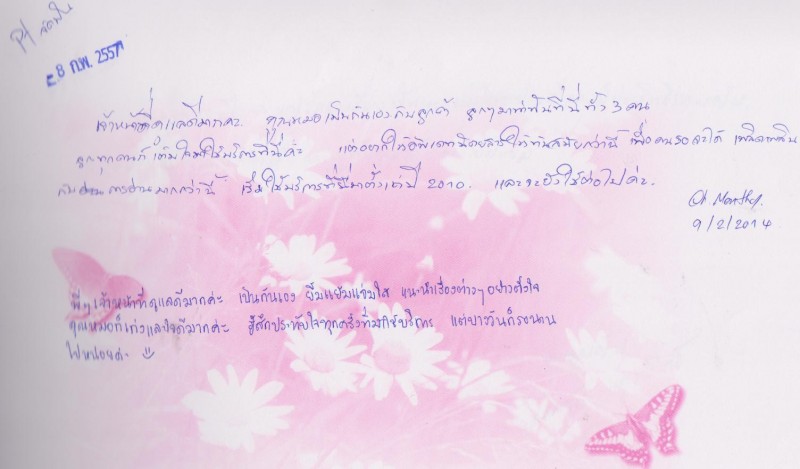 จัดฟัน
8 ก.พ. 2557
เจ้าหน้าที่ดูแลดีมากค่ะ คุณหมอเป็นกันเองกับลูกค้า ลูกๆมาทำฟันที่นี่ทั้ง 3 คน
ลูกทุกคนก็เต็มใจมาใช้บริการที่นี่ค่ะ แต่อยากให้อัพเดทนิตยสารให้ทันสมัยกว่านี้ เพื่อคนรอจะได้เพลิดเพลิน
กับการอ่านมากกว่านี้ เริ่มใช้บริการที่นี่มาตั้งแต่ปี 2010. และจะยังใช้ต่อไปค่ะ.
9/2/2014
พี่ๆเจ้าหน้าที่ดูแลดีมากค่ะ เป็นกันเอง ยิ้มแย้มแจ่มใส แนะนำเรื่องต่างๆอย่างตั้งใจ
คุณหมอก็เก่งและใจดีมากค่ะ รู้สึกประทับใจทุกครั้งที่มาใช้บริการ แต่บางวันก็รอนาน
ไปหน่อยค่ะ